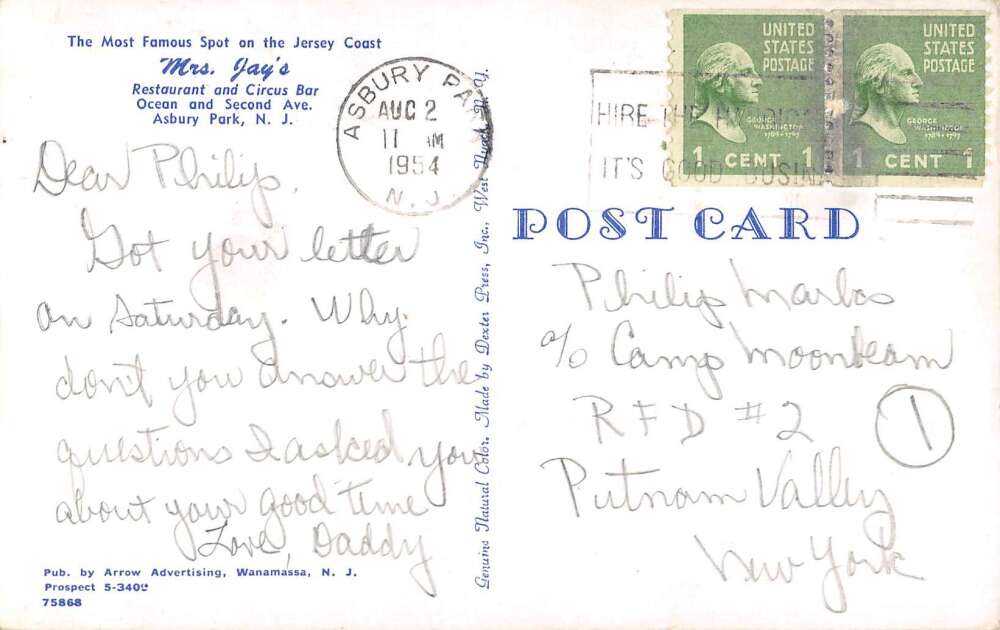 The Most Famous Spot on the Jersey Coast
Mrs. Jay's
Restaurant and Circus Bar
Ocean and Second Ave.
Asbury Park, N. J.
ASBURY PA
AUG 2
11 AM
1954
N. J.
UNITED
STATES
POSTAGE
GEORGE
WASHINGTON
1789-1797
1 CENT 1
UNITED
STATES
POSTAGE
GEORGE
WASHINGTON
1789-1797
1 CENT 1
HIRE THE
IT'S GOOD
Dear Philip,
Got your letter
on Saturday. Why
don't you answer the
questions I asked you
about your good time
Love, Daddy
Pub. by Arrow Advertising, Wanamassa, N. J.
Prospect 5-3400
75868
Genuine Natural Color. Made by Dexter Press, Inc., West Nyack, N. Y.
POST CARD
Philip Marks
c/o Camp Moonbeam
RFD #2
1
Putnam Valley
New York